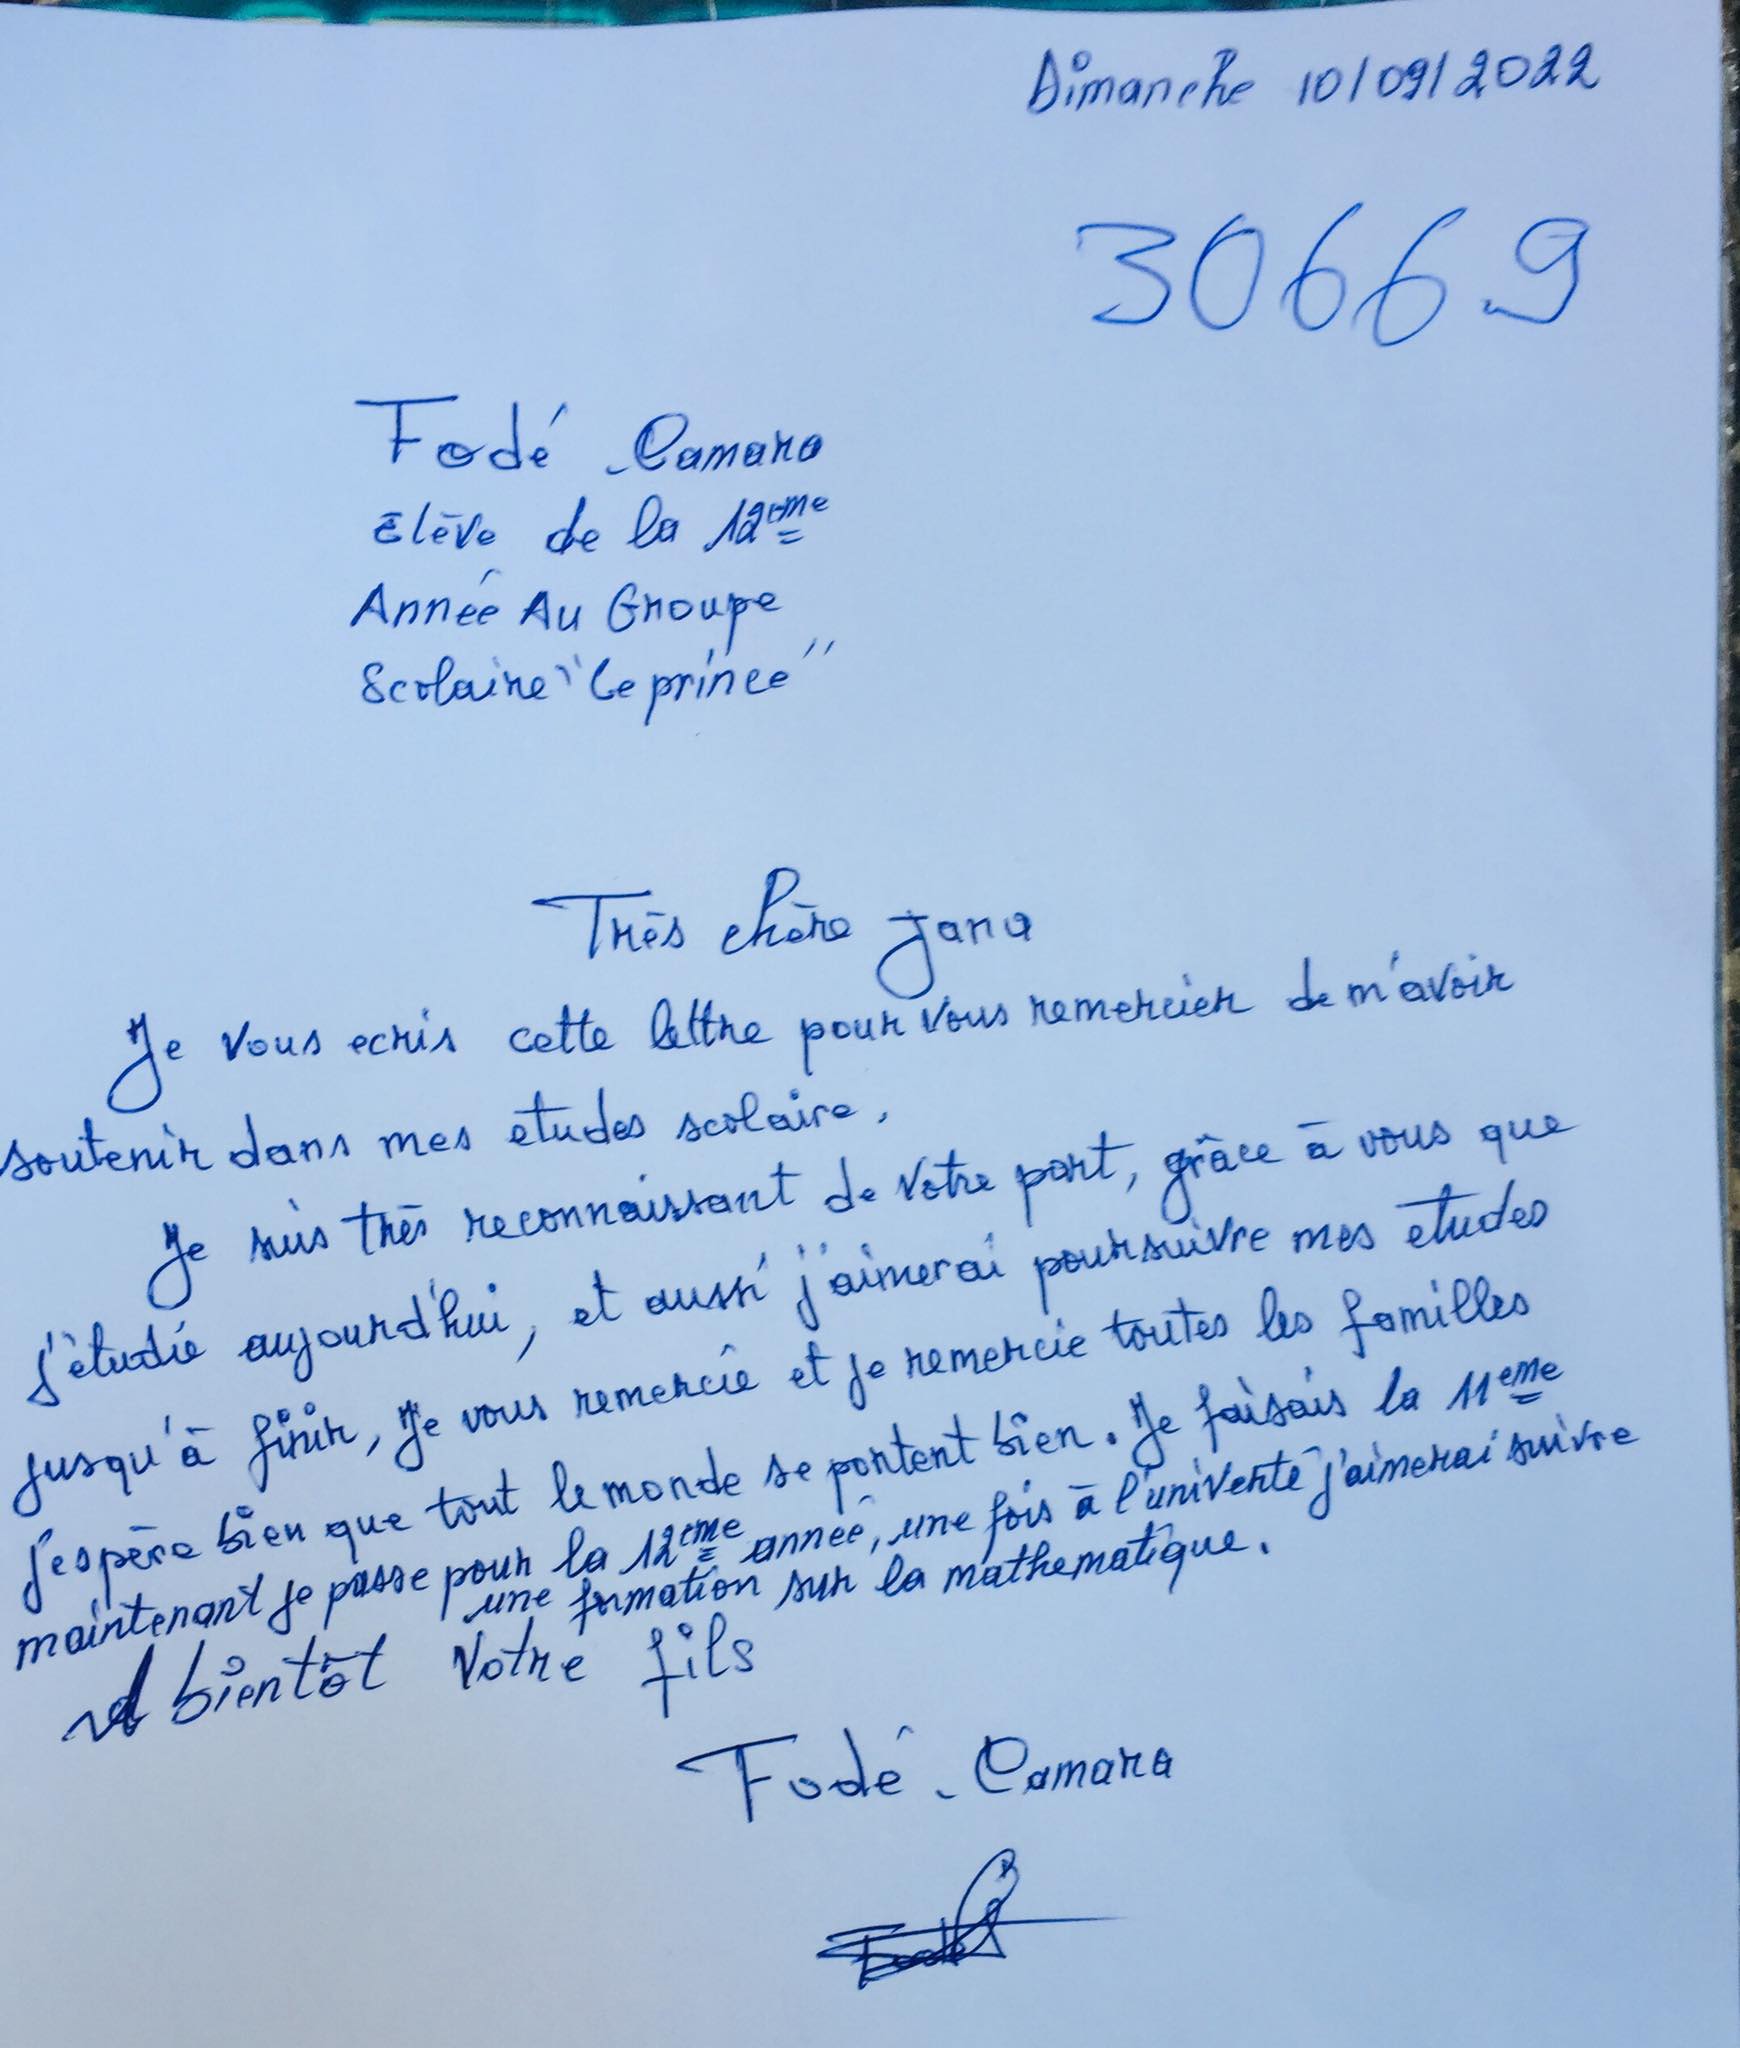 Dimanche 10/09/2022
30669
Fodé Camara
Elève de la 12ème
Année Au Groupe
Scolaire "Le prince"
Très chère Jana
Je vous ecris cette lettre pour vous remercier de m'avoir
soutenir dans mes études scolaire.
Je suis très reconnaissant de votre part, grâce à vous que
j'étudié aujourd'hui, et aussi j'aimerai poursuivre mes etudes
jusqu'à finir, Je vous remercie et je remercie toutes les familles
j'espère bien que tout le monde se portent bien. Je faisais la 11eme
maintenant je passe pour la 12ème année, une fois à l'univerté j'aimerai suivre
une formation sur la mathematique.
A bientôt Votre fils
Fodé Camara